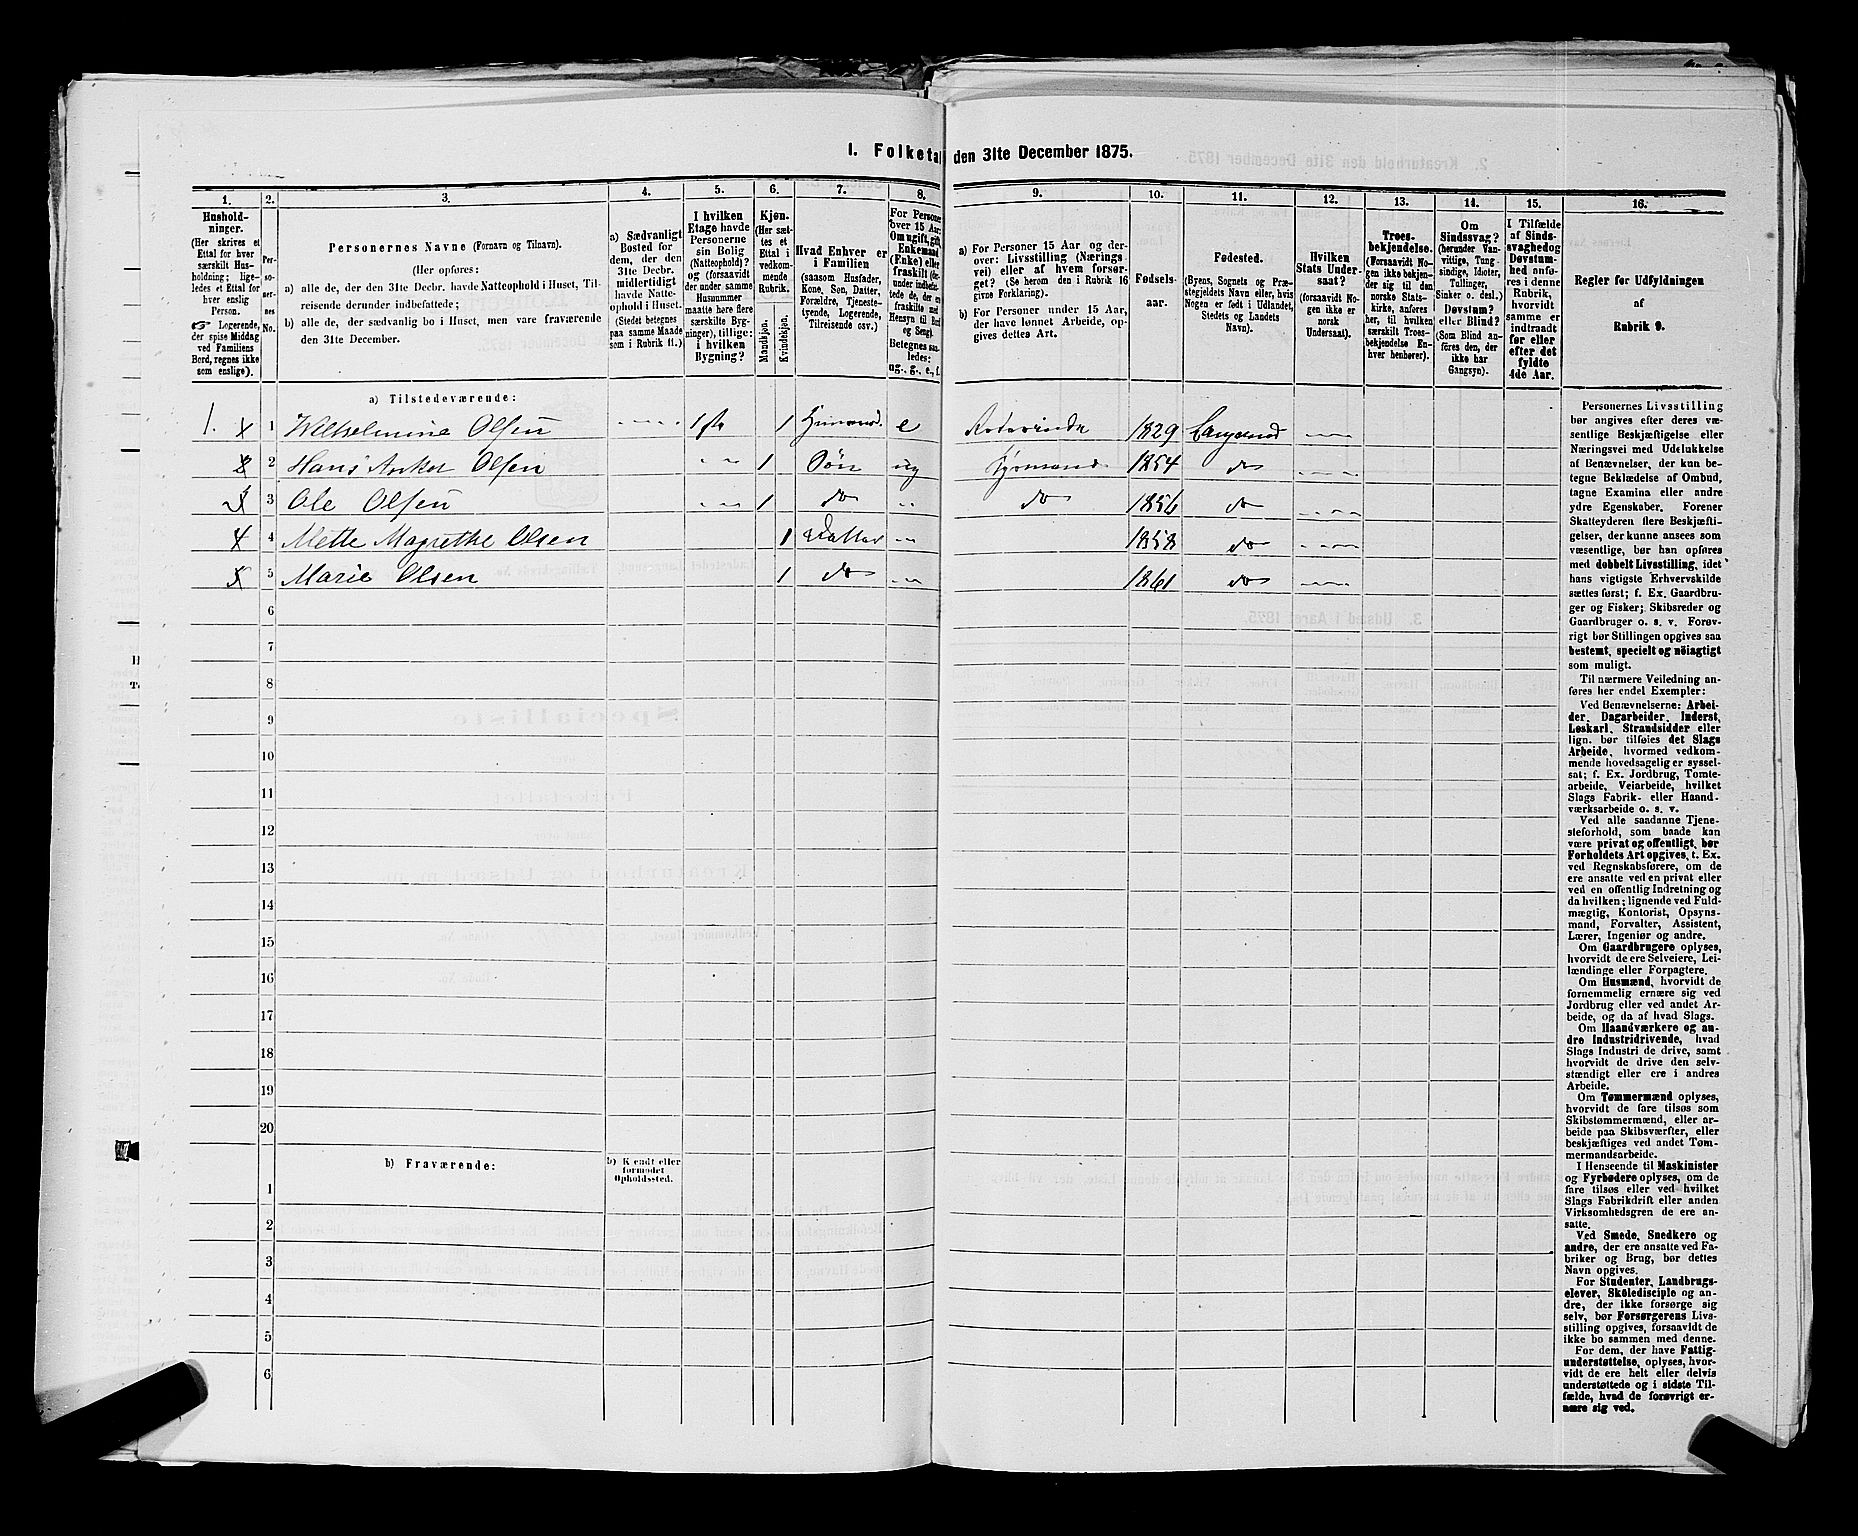 1. Folketal den 31te December 1875.
1. 2. 3. 4. 5. 6. 7. 8. 9. 10. 11. 12. 13. 14. 15. 16.
Hushold-
ninger.
(Her skrives et
Ettal for hver
særskilt Hus-
holdning; lige-
ledes et Ettal for
hver enslig
Person.
☞ Logerende,
der spise Middag
ved Familiens
Bord, regnes ikke
som enslige).
Per-
so-
ner-
nes
No.
Personernes Navne (Fornavn og Tilnavn).
(Her opføres:
a) alle de, der den 31te Decbr. havde Natteophold i Huset, Til-
reisende derunder indbefattede;
b) alle de, der sædvanlig bo i Huset, men vare fraværende
den 31te Decbr.
a) Sædvanligt
Bosted for
dem, der den
31te Decbr.
midlertidigt
havde Natte-
ophold i Huset.
(Stedet betegnes
paa samme Maade
som i Rubrik 11.)
I hvilken
Etage havde
Personerne
sin Bolig
(Natteophold)?
og (forsaavidt
der under samme
Husnummer
maatte høre flere
særskilte Byg-
ninger), tillige:
i hvilken
Bygning?
Kjøn.
(Her sæt-
tes et
Ettal i
vedkom-
mende
Rubrik.
Mandkjøn.
Kvindekjøn.
Hvad Enhver er
i Familien
(saasom Husfader,
Kone, Søn, Datter,
Forældre, Tjeneste-
tyende, Logerende,
Tilreisende osv.)
For Personer
over 15 Aar:
Om ugift, gift,
Enkemand
(Enke) eller
fraskilt (der-
under indbefat-
tede de, der ere
fraskilte med
Hensyn til Bord
og Seng).
Betegnes saa-
ledes:
ug., g., e., f.
a) For Personer 15 Aar og der-
over: Livsstilling (Nærings-
vei) eller af hvem forsør-
get? (Se herom den i Rubrik 16
givne Forklaring).
b) For Personer under 15 Aar,
der have lønnet Arbeide, op-
gives dettes Art.
Fødsels-
aar.
Fødested.
(Byens, Sognets og Præ-
stegjeldets Navn eller, hvis
Nogen er født i Udlandet,
Stedets og Landets
Navn).
Hvilken
Stats Under-
saat?
(forsaavidt No-
gen ikke er
norsk
Undersaat).
Troes-
bekjendelse.
(Forsaavidt No-
gen ikke bekjen-
der sig til den
norske Stats-
kirke, anføres
her, til hvilken
særskilt Troes-
bekjendelse En-
hver henhører).
Om
Sindssvag?
(herunder Van-
vittige, Tung-
sindige, Idioter,
Tullinger,
Sinker o. desl.)
Døvstum?
eller Blind?
(Som Blind an-
føres den, der
ikke har
Gangsyn).
I Tilfælde
af Sinds-
svaghed og
Døvstum-
hed anfø-
res i denne
Rubrik,
hvorvidt
samme er
indtraadt
før eller
efter det
fyldte
4de Aar.
Regler for Udfyldningen
af
Rubrik 9.
a) Tilstedeværende:
1. 1 Wilhelmine Olsen 1 1 e 1829 Langesund
2 Hans Anker Olsen 1 Søn ug Styrmand 1854 do
3 Ole Olsen 1 do do 1856 do
4 Mette Magrethe Olsen 1 Datter 1858 do
5 Marie Olsen 1 do 1861 do
6
7
8
9
10
11
12
13
14
15
16
17
18
19
20
b) Fraværende:
b) Kjendt eller
formodet
Opholdssted.
1
2
3
4
5
6
Personernes Livsstilling
bør angives efter deres væ-
sentlige Beskjæftigelse eller
Næringsvei med Udelukkelse
af Benævnelser, der kun be-
tegne Beklædelse af Ombud,
tagne Examina eller andre
ydre Egenskaber. Forener
Skatteyderen flere Beskjæfti-
gelser, der kunne ansees som
væsentlige, bør han opføres
med dobbelt Livsstilling, idet
hans vigtigste Erhvervskilde
sættes først; f. Ex. Gaardbru-
ger og Fisker; Skibsreder og
Gaardbruger o. s. v. Forøv-
rigt bør Stillingen opgives saa
bestemt, specielt og nøiagtigt
som muligt.
Til nærmere Veiledning an-
føres her endel Exempler:
Ved Benævnelserne: Arbei-
der, Dagarbeider, Inderst,
Løskarl, Strandsidder eller
lign. bør tilføies det Slags
Arbeide, hvormed vedkom-
mende hovedsagelig er syssel-
sat; f. Ex. Jordbrug, Tomte-
arbeide, Veiarbeide, hvilket
Slags Fabrik- eller Haand-
værksarbeide o. s. v.
Ved alle saadanne Tjene-
steforhold, som baade kan
være privat og offentligt, bør
Forholdets Art opgives, t. Ex.
ved Regnskabsførere, om de
ere ansatte ved en privat eller
ved en offentlig Indretning og
da hvilken; lignende ved Fuld-
mægtig, Kontorist, Opsyns-
mand, Forvalter, Assistent,
Lærer, Ingeniør og andre.
Om Gaardbrugere oplyses,
hvorvidt de ere Selveiere, Lei-
lændinge eller Forpagtere.
Om Husmænd, hvorvidt de
fornemmelig ernære sig ved
Jordbrug eller ved andet Ar-
beide, og da af hvad Slags.
Om Haandværkere og an-
dre Industridrivende, hvad
Slags Industri de drive, samt
hvorvidt de drive den selv-
stændigt eller ere i andres
Arbeide.
Om Tømmermænd oplyses,
hvorvidt de fare tilsøs som
Skibstømmermænd, eller ar-
beide paa Skibsværfter, eller
beskjæftiges ved andet Tøm-
mermandsarbeide.
I Henseende til Maskinister
og Fyrbødere oplyses, om de
fare tilsøs eller ved hvilket
Slags Fabrikdrift eller anden
Virksomhedsgren de ere an-
satte.
Ved Smede, Snedkere og
andre, der ere ansatte ved Fa-
briker og Brug, bør dettes
Navn opgives.
For Studenter, Landbrugs-
elever, Skoledisciple og an-
dre, der ikke forsørge sig
selv, bør Forsørgerens Livs-
stilling opgives, forsaavidt de
ikke bo sammen med denne.
For dem, der have Fattig-
understøttelse, oplyses, hvor-
vidt de ere helt eller delvis
understøttede og i sidste Til-
fælde, hvad de forøvrigt er-
nære sig ved.